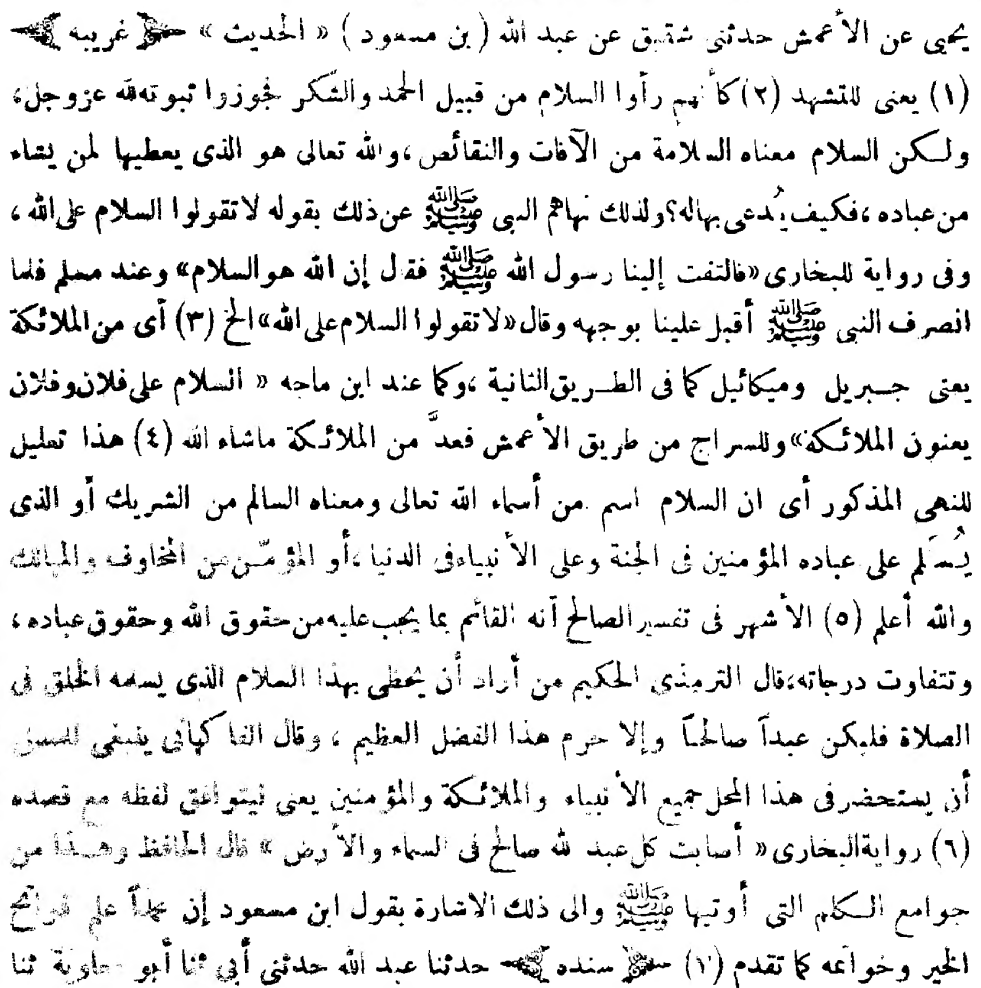 يحيى عن الأعمش حدثنى شقيق عن عبد الله ( بن مسعود ) « الحديث » غريبه
(١) يعنى للتشهد (٢) كأنهم رأوا السلام من قبيل الحمد والشكر فجوزوا ثبوته لله عز وجل،
ولكن السلام معناه السلامة من الآفات والنقائص ،والله تعالى هو الذى يعطيها لمن يشاء
من عباده ،فكيف يُدعى بها له؟ ولذلك نهاهم النبى ﷺ عن ذلك بقوله لا تقولوا السلام على الله ،
وفى رواية للبخارى «فالتفت إلينا رسول الله ﷺ فقال إن الله هو السلام» وعند مسلم فلما
انصرف النبى ﷺ أقبل علينا بوجهه وقال «لا تقولوا السلام على الله» الخ (٣) أى من الملائكة
يعنى جبريل وميكائيل كما فى الطريق الثانية ،وكما عند ابن ماجه « السلام على فلان وفلان
يعنون الملائكة» وللسراج من طريق الأعمش فعدَّ من الملائكة ماشاء الله (٤) هذا تعليل
للنهى المذكور أى ان السلام اسم من أسماء الله تعالى ومعناه السالم من الشريك أو الذى
يُسَلم على عباده المؤمنين فى الجنة وعلى الأنبياء فى الدنيا ،أو المؤمّن من المخاوف والمهالك
والله أعلم (٥) الأشهر فى تفسير الصالح أنه القائم بما يجب عليه من حقوق الله وحقوق عباده ،
وتتفاوت درجاته،قال الترمذى الحكيم من أراد أن يحظى بهذا السلام الذى يسلمه الخلق فى
الصلاة فليكن عبداً صالحاً وإلا حرم هذا الفضل العظيم ، وقال الفاكهانى ينبغى للمصلى
أن يستحضر فى هذا المحل جميع الأنبياء والملائكة والمؤمنين يعنى ليتوافق لفظه مع قصده
(٦) رواية البخارى « أصابت كل عبد لله صالح فى السماء والأرض » قال الحافظ وهذا من
جوامع الكلم التى أوتيها ﷺ والى ذلك الاشارة بقول ابن مسعود إن محمداً علم فواتح
الخير وخواتمه كما تقدم (٧) سنده حدثنا عبد الله حدثنى أبى ثنا أبو معاوية ثنا